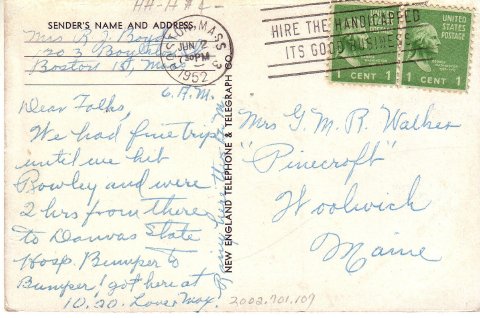 HH-H #2
SENDER'S NAME AND ADDRESS
Mrs B. J. Boyd
1203 Boylston St
Boston 15, Mass
6 A.M.
Dear Folks,
We had fine trip
until we hit
Rowley and were
2 hrs from there
to Danvas State
Hosp. Bumper to
Bumper! got here at
10.20. Love, May.
Rainy here
NEW ENGLAND TELEPHONE & TELEGRAPH CO.
BOSTON, MASS. 3
JUN 2
730 PM
1952
HIRE THE HANDICAPPED
ITS GOOD BUSINESS
UNITED
STATES
POSTAGE
1 CENT 1
1 CENT 1
Mrs G. M. R. Walker
"Pinecroft"
Woolwich
Maine
2002.701.107